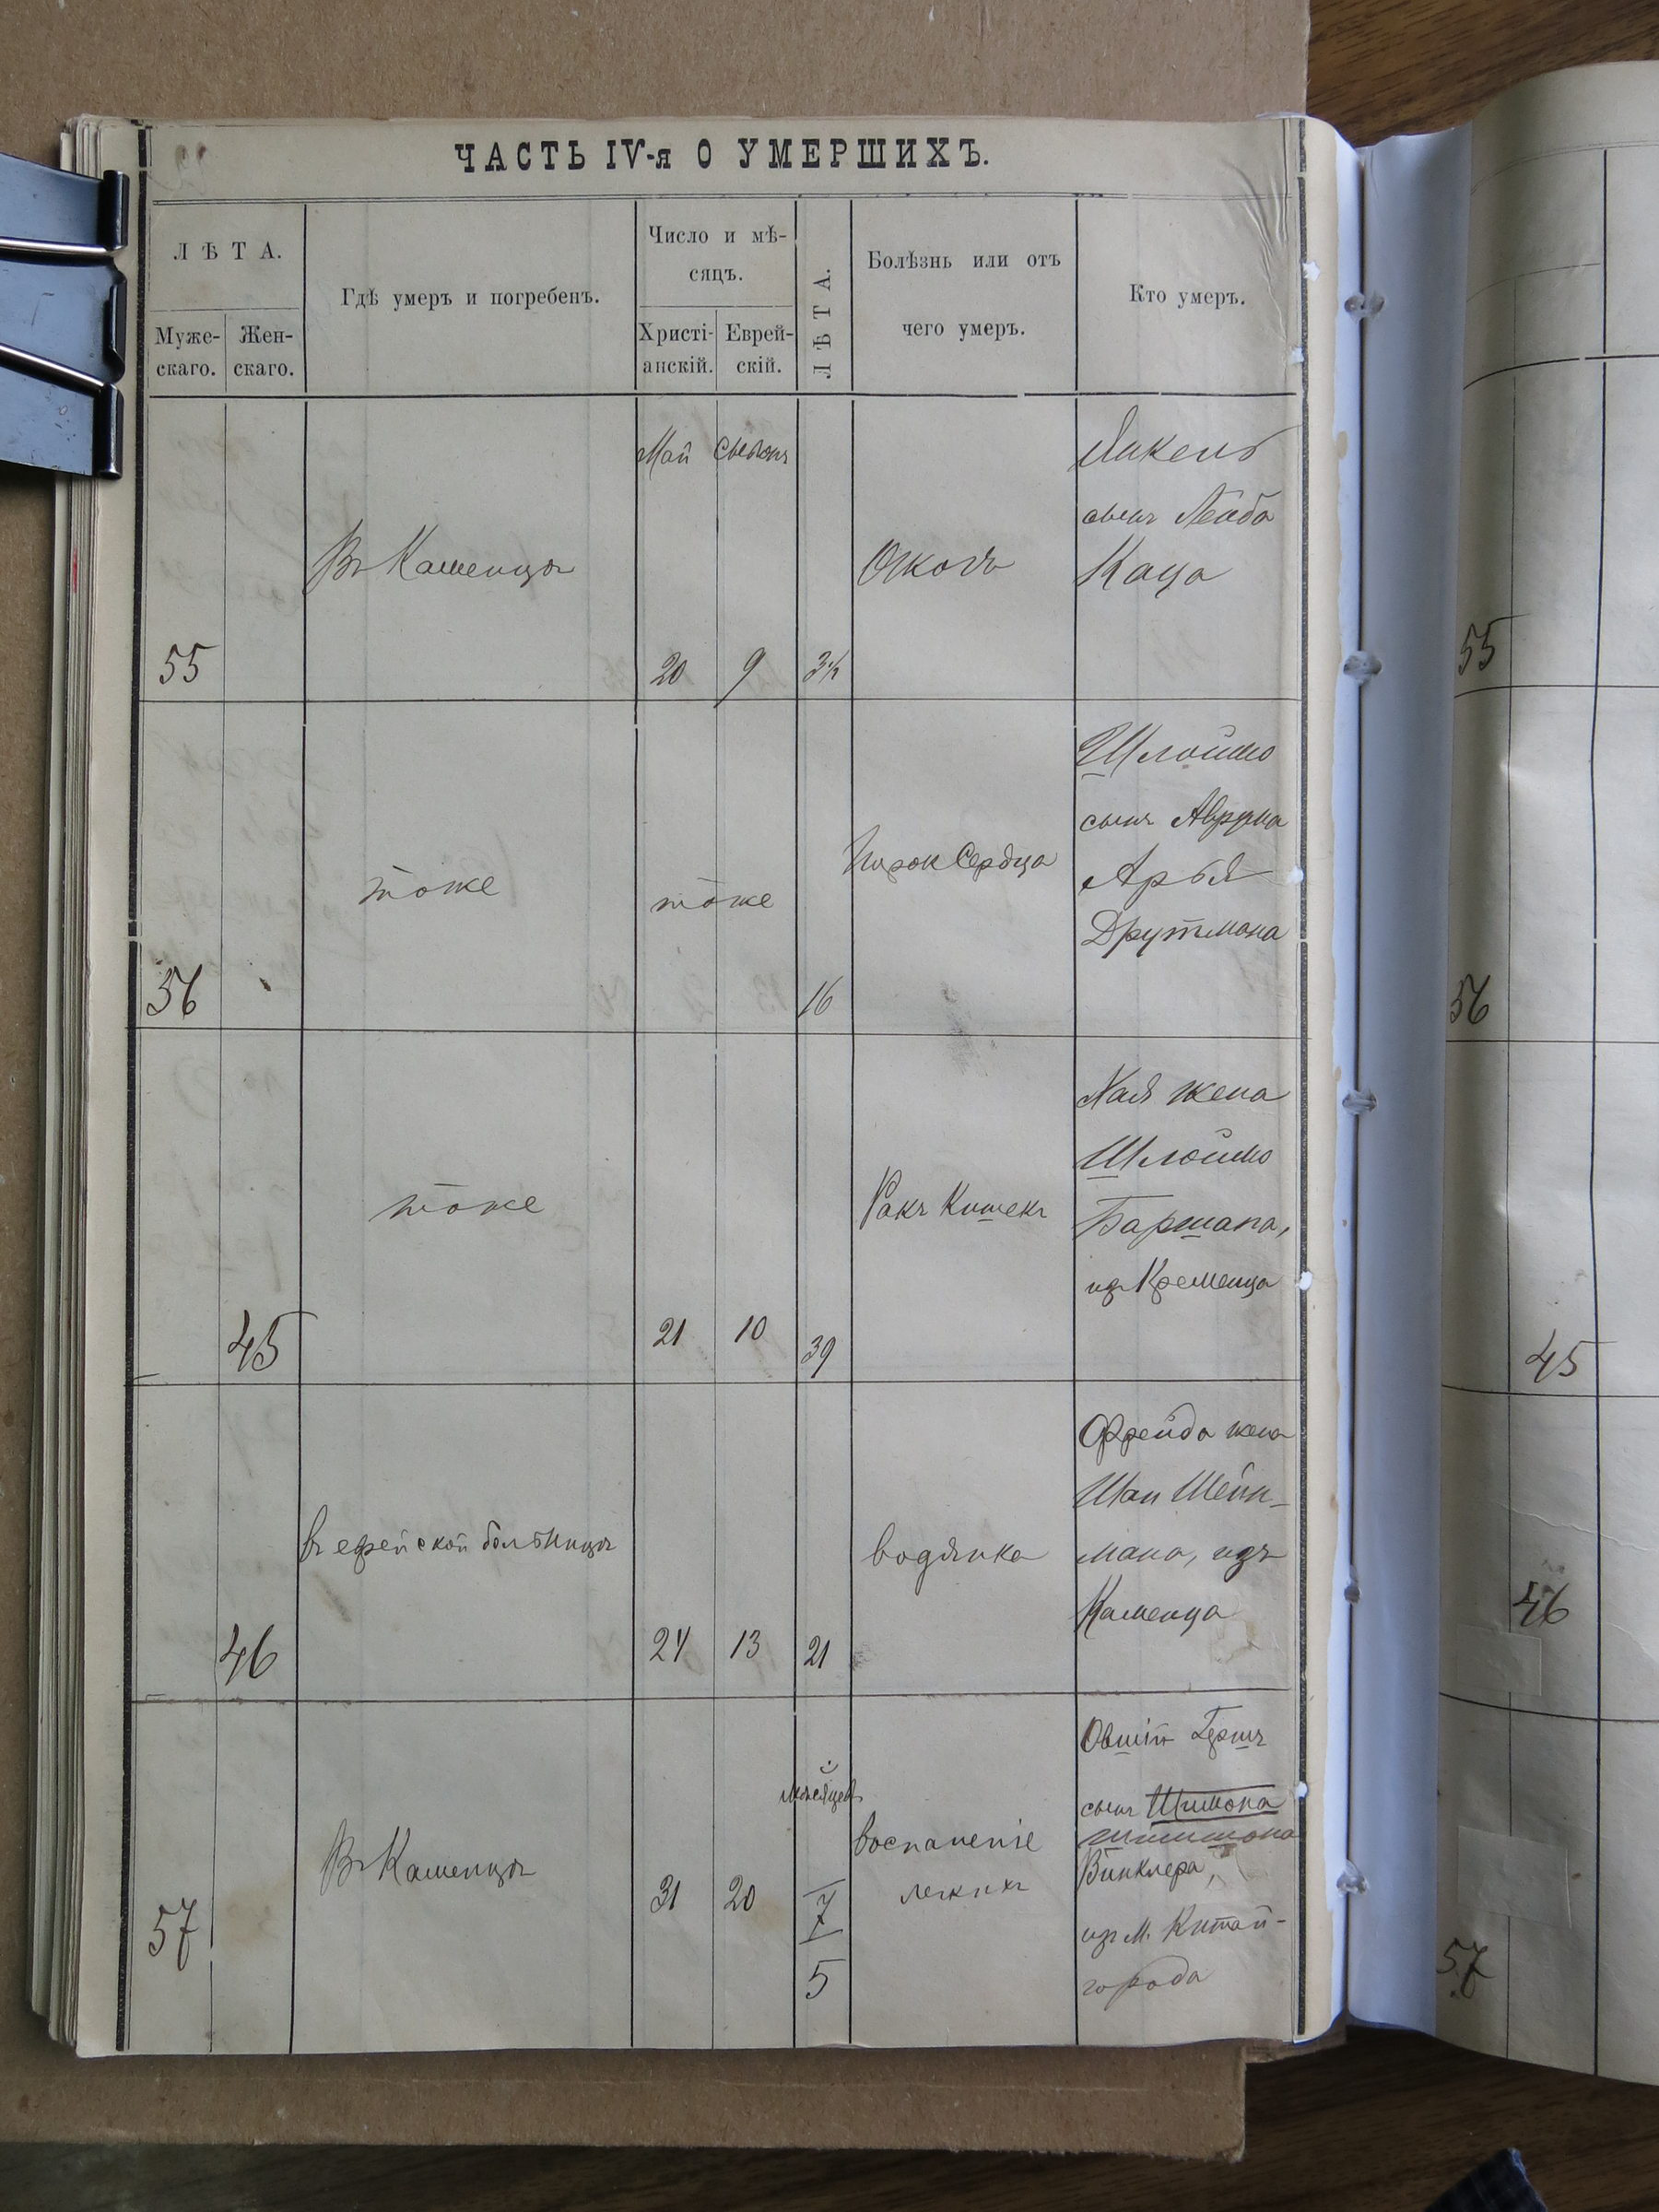 ЧАСТЬ IV-я О УМЕРШИХЪ.
ЛѢТА.
Муже-
скаго.
Жен-
скаго.
Гдѣ умеръ и погребенъ.
Число и мѣ-
сяцъ.
Христі-
анскій.
Еврей-
скій.
ЛѢТА.
Болѣзнь или отъ
чего умеръ.
Кто умеръ.
55
Въ Каменцѣ
Май
20
9
сынъ Лейба
Каца
56
тоже
тоже
16
Порок Сердца
Шлоймо
сынъ Аврума
Арья
Друтмана
45
тоже
21
10
39
Ракъ Кишекъ
Хая жена
Шлоймо
Бармана,
изъ Кременца
46
21
13
21
водянка
Фрейда жена
Шаи Шейн-
мана, изъ
Каменца
57
Въ Каменцѣ
31
20
месяцев
7
5
воспаление
легкихъ
Овшій Гершъ
сынъ Шимона
Винклера,
из М. Китай-
города
55
56
45
46
57